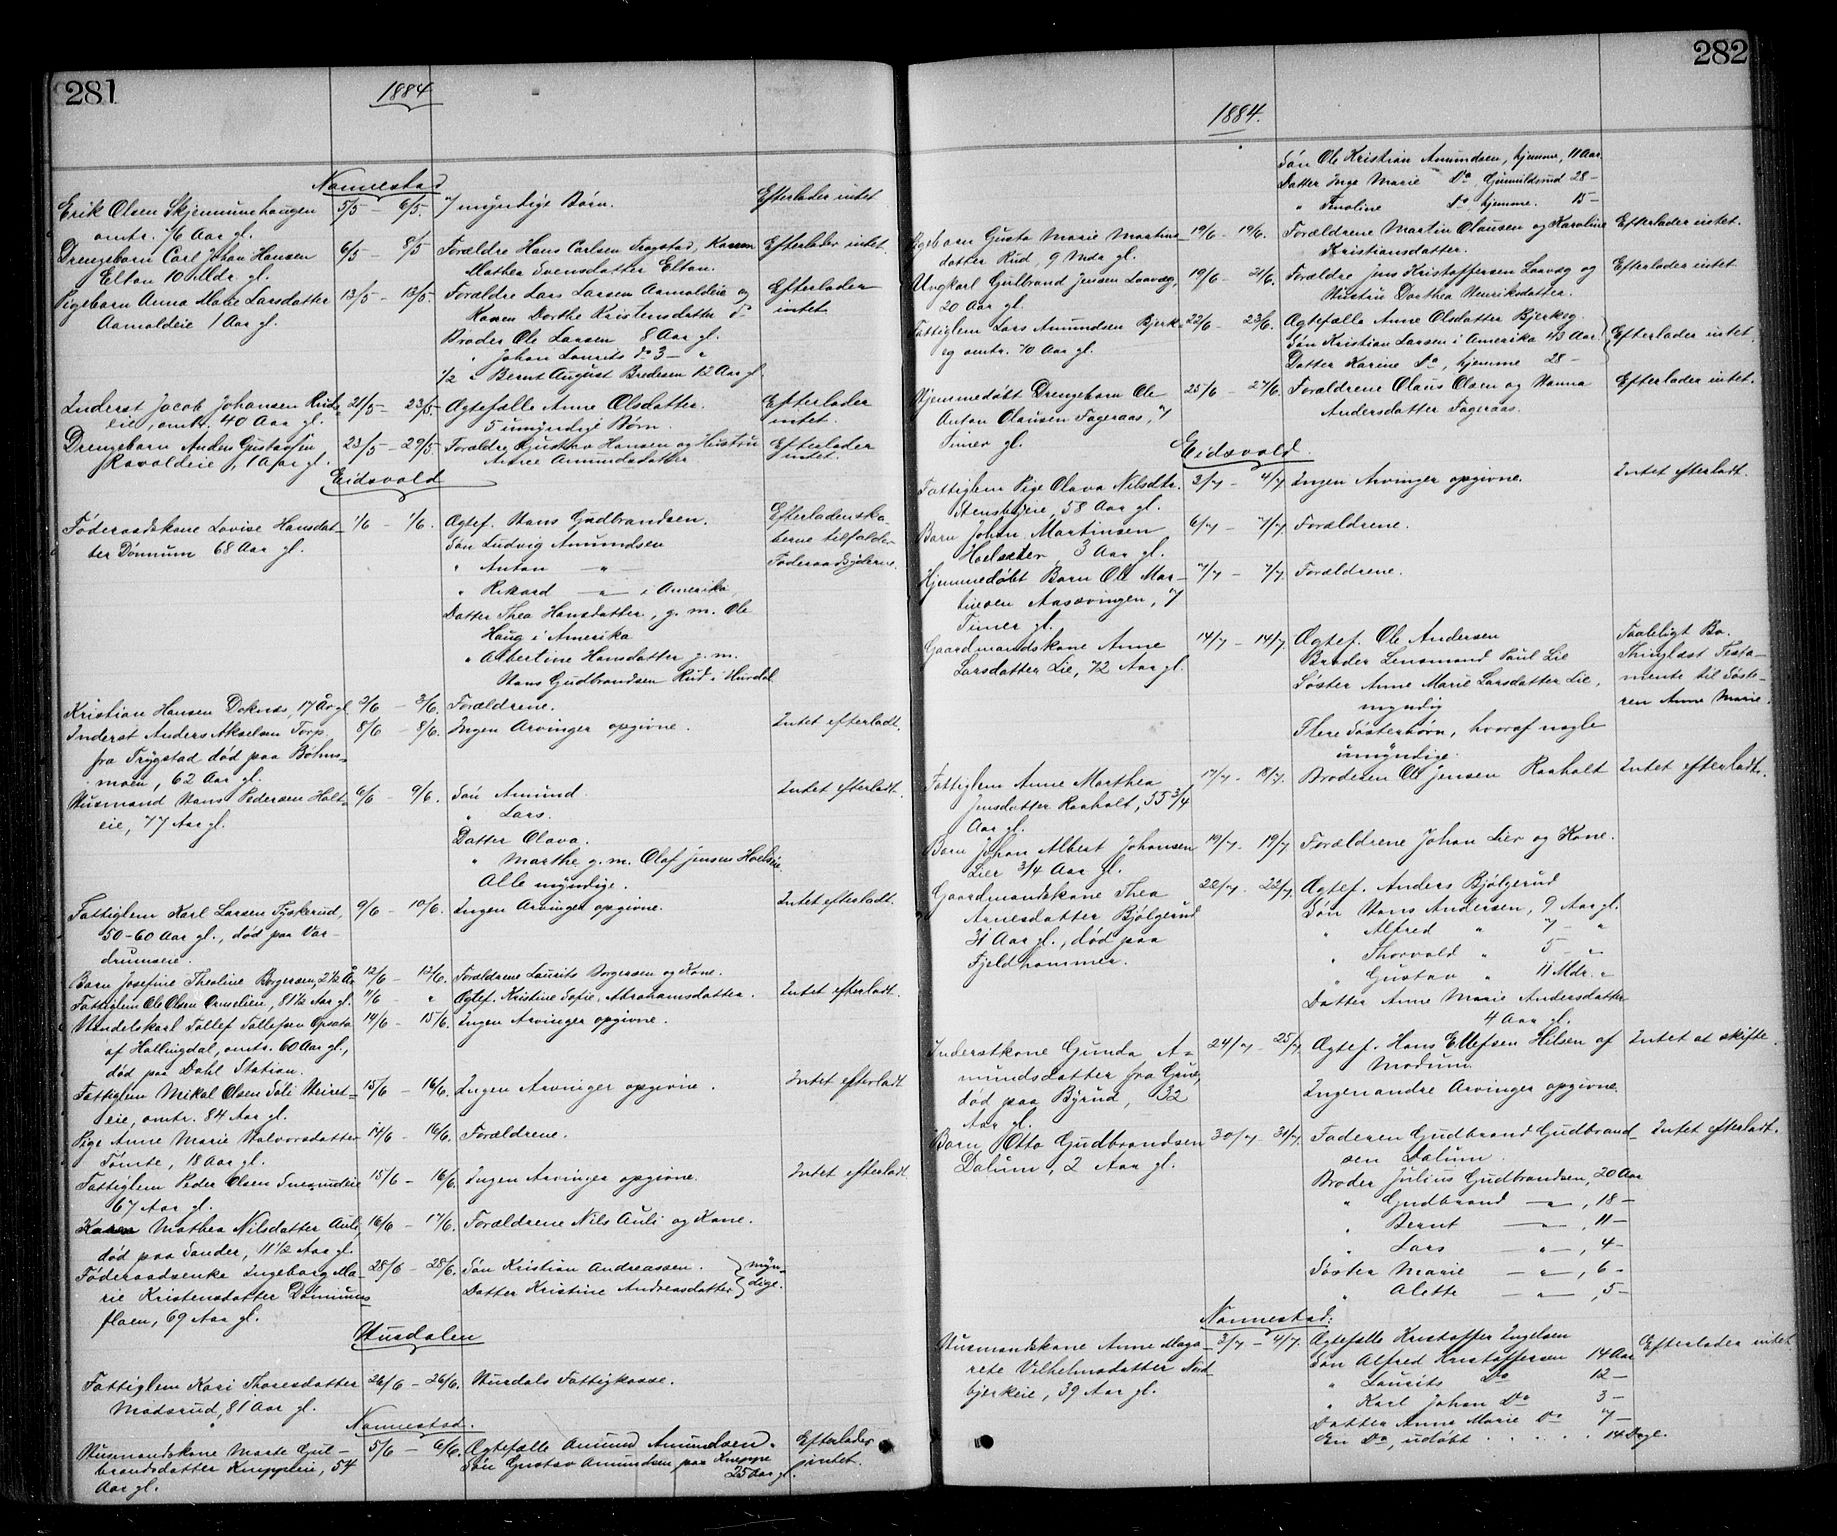 281
1884
Nannestad
Erik Olsen Skjennumhaugen 5/5 – 6/5. 7 myndige Børn. Efterlader intet
omtr. 76 Aar gl.
Drengebarn Carl Johan Hansen 6/5 – 8/5 Forældre Hans Carlsen Trogstad, Karen Efterlader intet.
Elton 10 Mdr. gl. Mathea Svensdatter Elton.
Pigebarn Anna Marie Larsdatter 13/5 – 13/5 Forældre Lars Larsen Aamoldeie og Efterlader
Aamoldeie 1 Aar gl. Karen Dorthe Kristensdatter intet
Broder Ole Larsen 8 Aar gl.
" Johan Laurits do 3 – "
1/2 " Bernt August Bredesen 12 Aar gl.
Inderst Jacob Johansen Rud- 21/5 – 23/5 Ægtefælle Anne Olsdatter. Efterlader
eie, omtr. 40 Aar gl. 5 umyndige Børn. intet.
Drengebarn Anders Gustavsen 23/5 – 29/5. Forældre Gustav Hansen og Hustru Efterlader
Ravoldeie, 1 Aar gl. Anne Amundsdatter intet.
Eidsvold
Føderaadskone Lovise Hansdat- 1/6 – 1/6. Ægtef. Hans Gudbrandsen. Efterladenska-
ter Dønnum 68 Aar gl. Søn Ludvig Amundsen berne tilfalder
" Anton — " — Føderaadsyderne.
" Rikard — " — i Amerika,
Datter Thea Hansdatter, g. m. Ole
Haug i Amerika
" Albertine Hansdatter g. m.
Hans Gudbrandsen Rud i Hurdal
Kristian Hansen Doknæs, 17 År gl. 2/6 – 3/6. Forældrene.
Inderst Anders Akselsen Torp 8/6 – 8/6. Ingen Arvinger opgivne. Intet efterladt.
fra Trygstad død paa Bøhns-
moen, 62 Aar gl.
Husmand Hans Pedersen Holt- 6/6 – 9/6. Søn Amund. Intet efterladt.
eie, 77 Aar gl. " Lars.
Datter Olava.
" Marthe g. m. Olaf Jensen Hoelseie
Alle myndige.
Fattiglem Karl Larsen Tyskerud, 9/6 – 10/6. Ingen Arvinger opgivne. Intet efterladt.
50-60 Aar gl., død paa Var-
drumseie.
Barn Josefine Theoline Borgersen, 2 1/2 Aar 12/6 – 12/6. Forældrene Laurits Borgersen og Kone.
Fattiglem Ole Olsen Ornelien, 81 1/2 Aar gl. 11/6 – " Ægtef. Kristine Sofie Abrahamsdatter. Intet efterladt.
Handelskarl Tollef Tollefsen Opsata 14/6 – 15/6. Ingen Arvinger opgivne.
af Hallingdal, omtr. 60 Aar gl.,
død paa Dahl Station.
Fattiglem Mikal Olsen Sæli Heiret- 15/6 – 16/6. Ingen Arvinger opgivne. Intet efterladt
eie, omtr. 84 Aar gl.
Pige Anne Marie Halvorsdatter 14/6 – 16/6. Forældrene.
Tømte, 18 Aar gl.
Fattiglem Peder Olsen 15/6 – 16/6. Ingen Arvinger opgivne. Intet efterladt
67 Aar gl.
Mathea Nilsdatter Auli, 16/6 – 17/6. Forældrene Nils Auli og Kone.
død paa Sander, 11 1/2 Aar gl.
Føderaadsenke Ingeborg Ma- 28/6 – 28/6. Søn Kristian Andreassen. myn-
rie Kristensdatter Dønnums- Datter Kristine Andreasdatter dige.
floen, 69 Aar gl.
Hurdalen
Fattiglem Kari Thoresdatter 26/6 – 26/6. Hurdals Fattigkasse.
Madsrud, 81 Aar gl.
Nannestad.
Husmandskone Marte Gul- 5/6 – 6/6. Ægtefælle Amund Amundsen. Efterlader
brandsdatter Kneppeie, 54 Søn Gustav Amundsen paa Kneppe intet.
Aar gl. 25 Aar gl.
282
1884.
Søn Ole Kristian Amundsen, hjemme, 11 Aar
Datter Inge Marie Do Gunnildsrud 28 –
" Tinoline Do hjemme. 15 –
Pigebarn Gusta Marie Martins- 19/6 – 19/6. Forældrene Martin Olausen og Karoline Efterlader intet.
datter Rud, 9 Mdr gl. Kristiansdatter.
Ungkarl Gulbrand Jensen Laavæg, 19/6 – 21/6. Forældre Jens Kristoffersen Laavæg og Efterlader intet
20 Aar gl. Hustru Dorthea Henriksdatter.
Fattiglem Lars Amundsen Bjerk- 22/6 – 23/6. Ægtefælle Anne Olsdatter Bjerkeg.
eg omtr. 70 Aar gl. Søn Kristian Larsen i Amerika 43 Aar. Efterlader intet.
Datter Karine Do, hjemme 28 –
Hjemmedøbt Drengebarn Ole 25/6 – 27/6. Forældrene Olaus Olsen og Hanna Efterlader intet.
Anton Olausen Fageraas, 7 Andersdatter Fageraas.
Timer gl.
Eidsvold
Fattiglem Pige Olava Nilsdtr. 3/7 – 4/7 Ingen Arvinger opgivne. Intet efterladt.
Stensbyeie, 58 Aar gl.
Barn Johan Martinsen 6/7 – 7/7 Forældrene.
Hoelsæter 3 Aar gl.
Hjemmedøbt Barn Ole Mar- 7/7 – 7/7. Forældrene.
tinsen Aasvvingen, 7
Timer gl.
Gaardmandskone Anne 14/7 – 14/7. Ægtef. Ole Andersen Taaleligt Bo.
Larsdatter Lie, 72 Aar gl. Broder Lensmand Paul Lie Thinglæst Testa-
Søster Anne Marie Larsdatter Lie, mente til Søste-
myndig ren Anne Marie.
Flere Søsterbørn, hvoraf nogle
umyndige.
Fattiglem Anne Marthea 17/7 – 18/7. Broderen Ole Jensen Raaholt Intet efterladt.
Jensdatter Raaholt, 55 3/4
Aar gl.
Barn Johan Albert Johansen 19/7 – 19/7 Forældrene Johan Lier og Kone.
Lier 3/4 Aar gl.
Gaardmandskone Thea 22/7 – 22/7. Ægtef. Anders Bjølgerud
Arnesdatter Bjølgerud Søn Hans Andersen, 9 Aar gl.
31 Aar gl., død paa " Alfred " 7 – "
Fjeldhammer. " Thorvald " 5 – "
" Gustav " 11 Mdr. "
Datter Anne Marie Andersdatter
4 Aar gl.
Inderstkone Gunda A- 24/7 – 25/7 Ægtef. Hans Ellefsen Hilsen af Intet at skifte.
mundsdatter fra Grue, Modum.
død paa Byrud, 32 Ingen andre Arvinger opgivne.
Aar gl.
Barn Otto Gudbrandsen 30/7 – 31/7. Faderen Gudbrand Gudbrand- Intet efterladt.
Dalum, 2 Aar gl. sen Dalum.
Broder Julius Gudbrandsen, 20 Aar
" Gudbrand — " —, 18 –
" Bernt — " —, 11 –
" Lars — " —, 4 –
Søster Marie — " —, 6 –
" Alette — " —, 5 –
Nannestad.
Husmandskone Anne Marga- 3/7 – 4/7. Ægtefælle Kristoffer Engelsen Efterlader intet
rete Vilhelmsdatter Nord- Søn Alfred Kristoffersen 14 Aar
bjerkeie, 39 Aar gl. " Laurits Do 12 –
" Karl Johan Do 3 –
Datter Anne Marie Do 7 –
En Do, udøbt . . . . . 14 Dage.